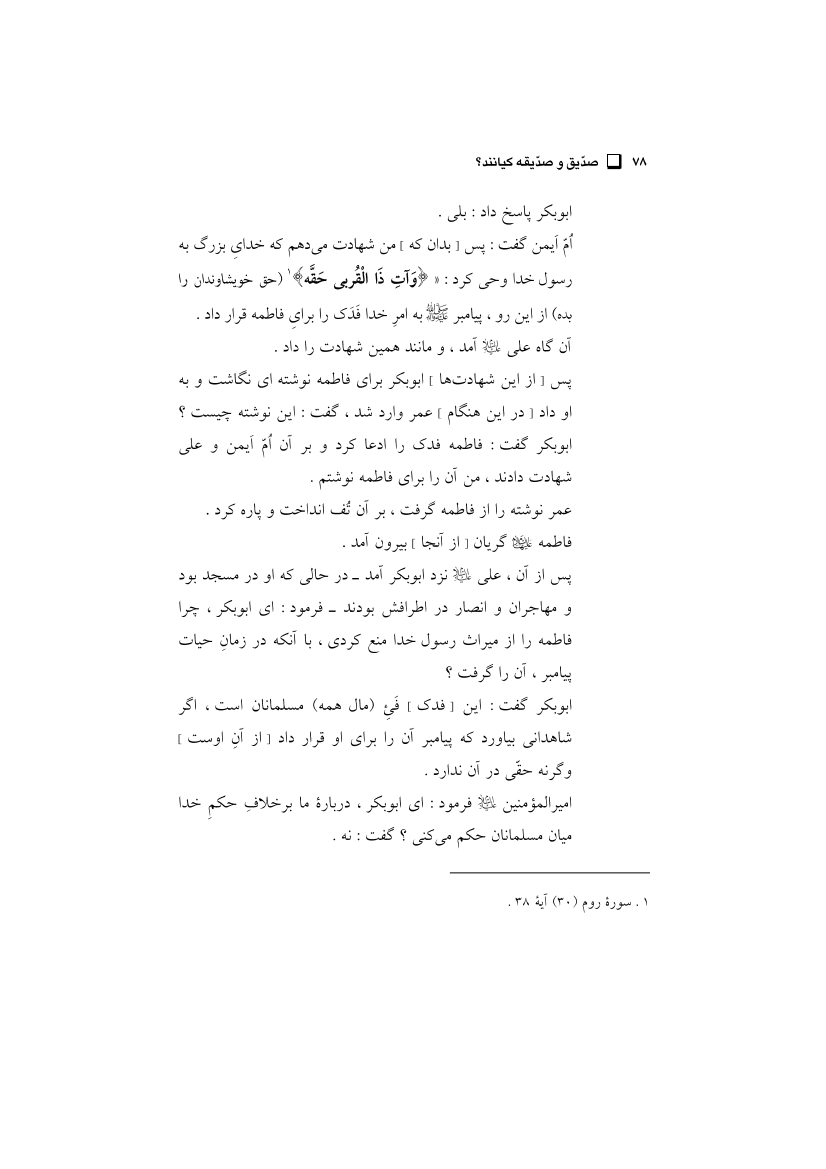 ۷۸ ❑ صدّیق و صدّیقه کیانند؟
ابوبکر پاسخ داد : بلی .
اُمّ اَیمن گفت : پس [ بدان که ] من شهادت می‌دهم که خدایِ بزرگ به
رسول خدا وحی کرد : « ﴿وَآتِ ذَا الْقُربی حَقَّه﴾۱ (حق خویشاوندان را
بده) از این رو ، پیامبر ﷺ به امرِ خدا فَدَک را برایِ فاطمه قرار داد .
آن گاه علی علیه السلام آمد ، و مانند همین شهادت را داد .
پس [ از این شهادت‌ها ] ابوبکر برای فاطمه نوشته ای نگاشت و به
او داد [ در این هنگام ] عمر وارد شد ، گفت : این نوشته چیست ؟
ابوبکر گفت : فاطمه فدک را ادعا کرد و بر آن اُمّ اَیمن و علی
شهادت دادند ، من آن را برای فاطمه نوشتم .
عمر نوشته را از فاطمه گرفت ، بر آن تُف انداخت و پاره کرد .
فاطمه علیها السلام گریان [ از آنجا ] بیرون آمد .
پس از آن ، علی علیه السلام نزد ابوبکر آمد ـ در حالی که او در مسجد بود
و مهاجران و انصار در اطرافش بودند ـ فرمود : ای ابوبکر ، چرا
فاطمه را از میراث رسول خدا منع کردی ، با آنکه در زمانِ حیات
پیامبر ، آن را گرفت ؟
ابوبکر گفت : این [ فدک ] فَئِ (مال همه) مسلمانان است ، اگر
شاهدانی بیاورد که پیامبر آن را برای او قرار داد [ از آنِ اوست ]
وگرنه حقّی در آن ندارد .
امیرالمؤمنین علیه السلام فرمود : ای ابوبکر ، دربارۀ ما برخلافِ حکمِ خدا
میان مسلمانان حکم می‌کنی ؟ گفت : نه .
۱ . سورۀ روم (۳۰) آیۀ ۳۸ .